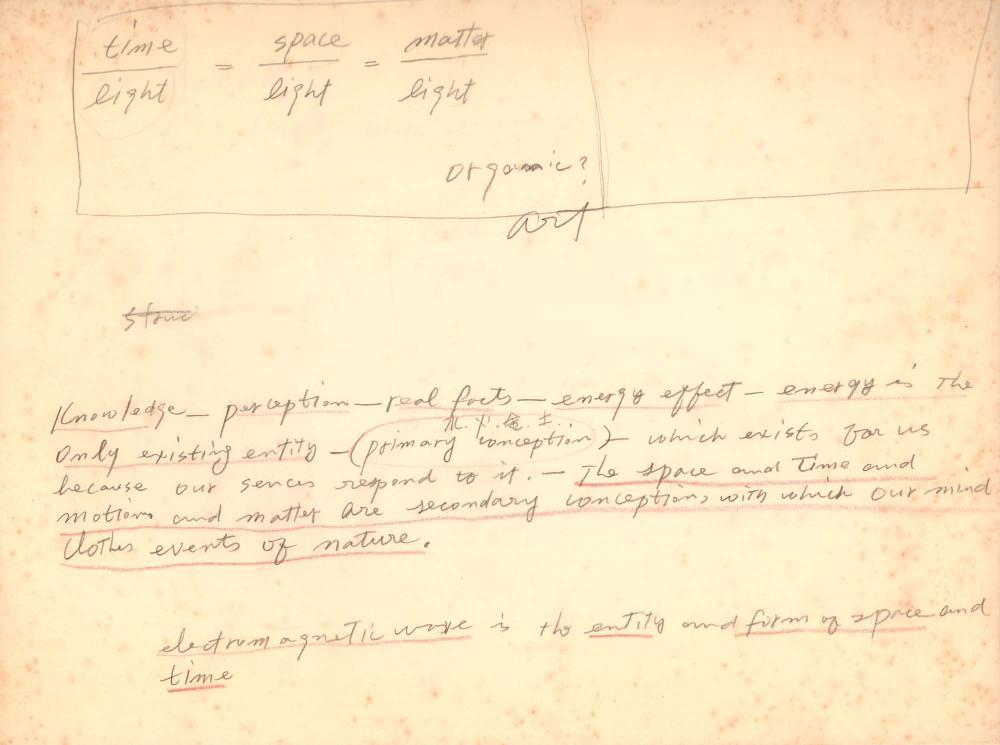 time = space = matter
light light light
organic?
art
struc
Knowledge – perception – real facts – energy effect – energy is the
水.火.金.土..
only existing entity – (primary conception) – which exists for us
because our sences respond to it. – The space and time and
motions and matter are secondary conceptions with which our mind
clothes events of nature.
electromagnetic wave is the entity and form of space and
time